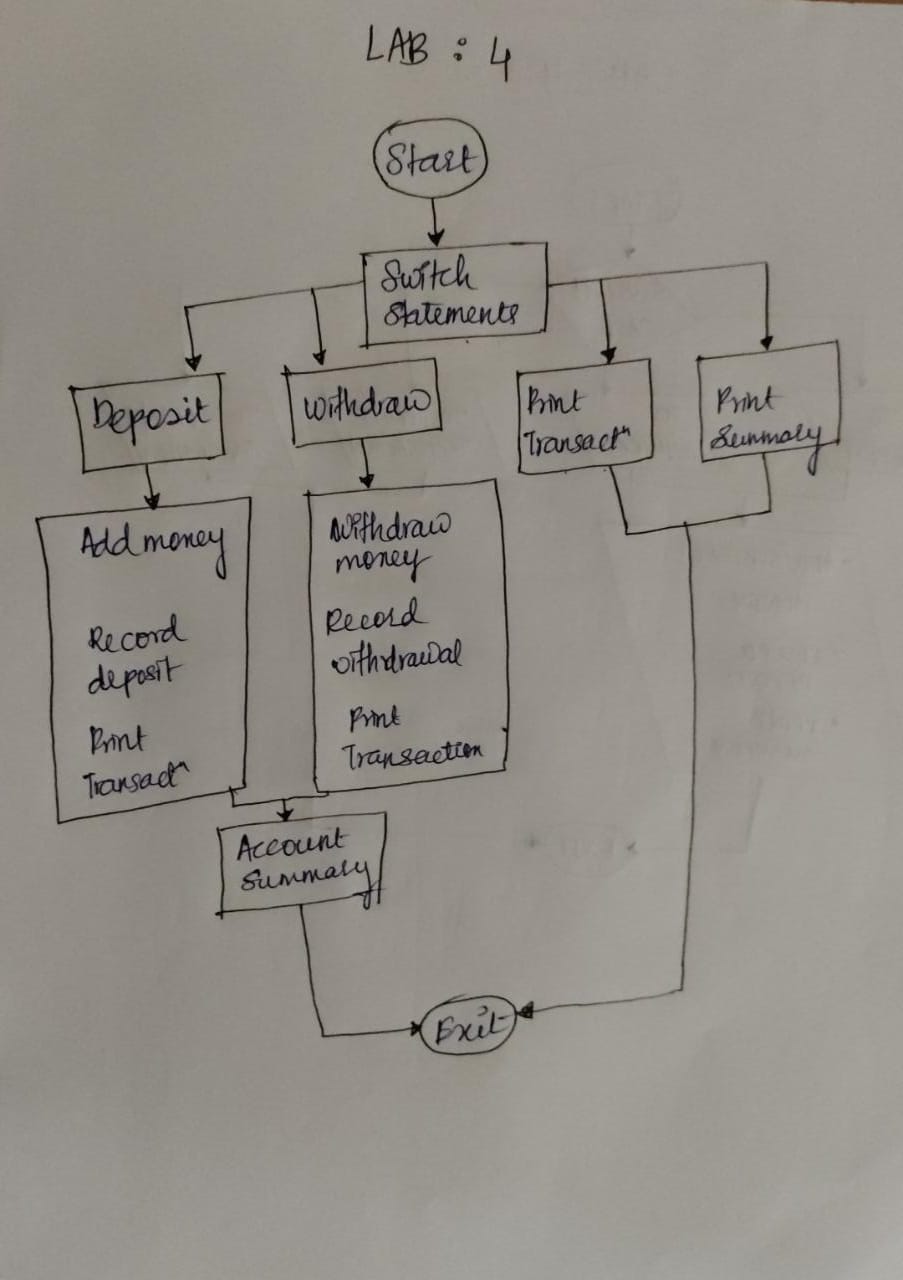 LAB : 4
Start
Switch
Statements
Deposit
Withdraw
Print
Transactn
Print
Summary
Add money
Record
deposit
Print
Transactn
Withdraw
money
Record
withdrawal
Print
Transaction
Account
Summary
Exit